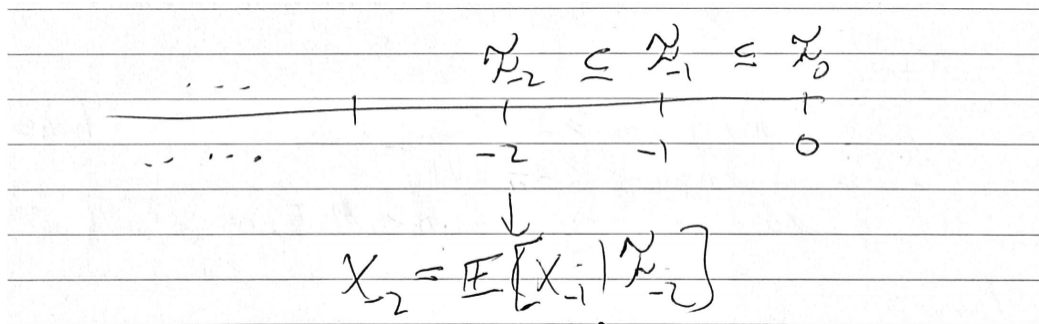 ... ℱ₋₂ ⊆ ℱ₋₁ ⊆ ℱ₀
.. ... -2 -1 0
↓
X₋₂ = 𝔼[X₋₁ | ℱ₋₂]